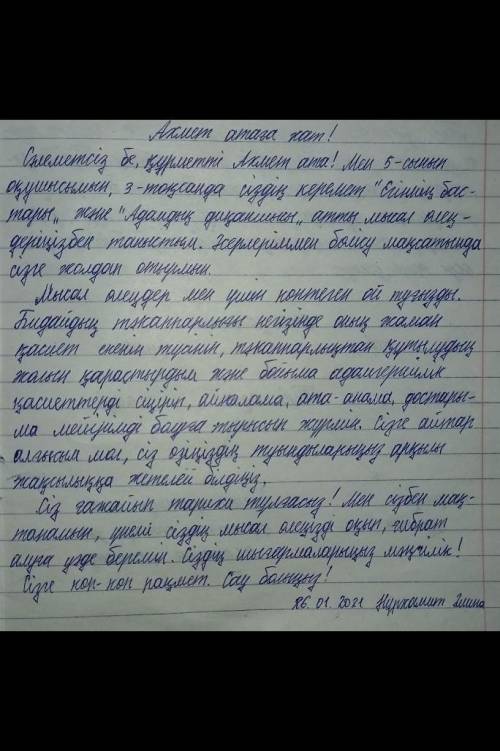 Ахмет атаға хат!
Сәлеметсіз бе, құрметті Ахмет ата! Мен 5-сынып
оқушысымын, 3-тоқсанда сіздің керемет "Егіннің бас-
тары" және "Адамдық диқаншысы" атты мысал өлең-
деріңізбен таныстым. Әсерлеріммен бөлісу мақсатында
сізге жолдап отырмын.
Мысал өлеңдер мен үшін көптеген ой туғызды.
Бидайдың тәкаппарлығы негізінде оның жаман
қасиет екенін түсініп, тәкаппарлықтан құтылудың
жолын қарастырдым және бойыма адамгершілік
қасиеттерді сіңіріп, айналама, ата-анама, достары-
ма мейірімді болуға тырысып жүрмін. Сізге айтар
алғысым мол, сіз өзіңіздің туындыларыңыз арқылы
жақсылыққа жетелей білдіңіз.
Сіз ғажайып тарихи тұлғасыз! Мен сізбен мақ-
танамын, үнемі сіздің мысал өлеңізді оқып, ғибрат
алуға уәде беремін. Сіздің шығармаларыңыз мәңгілік!
Сізге көп-көп рақмет. Сау болыңыз!
26.01.2021 Нұрхамит